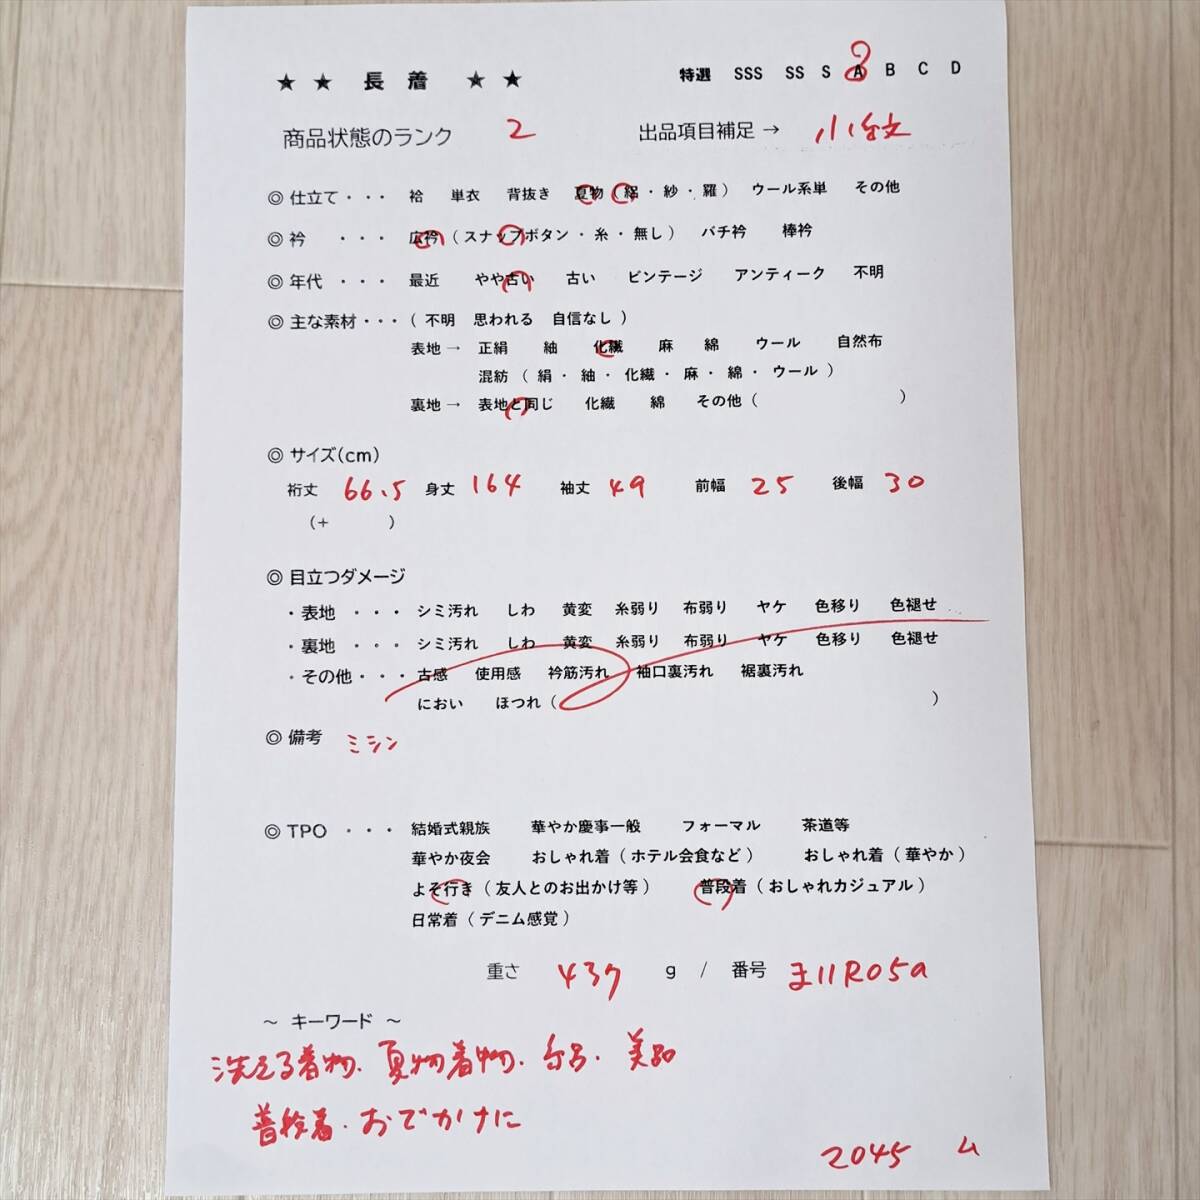 ★ ★ 長 着 ★ ★ 特選 SSS SS S A B C D
商品状態のランク 2 出品項目補足 → 小紋
◎ 仕立て・・・ 袷 単衣 背抜き 夏物 ( 絽・紗・羅 ) ウール系単 その他
◎ 衿 ・・・ 広衿 ( スナップボタン・糸・無し ) バチ衿 棒衿
◎ 年代 ・・・ 最近 やや古い 古い ビンテージ アンティーク 不明
◎ 主な素材・・・ ( 不明 思われる 自信なし )
表地 → 正絹 紬 化繊 麻 綿 ウール 自然布
混紡 ( 絹・紬・化繊・麻・綿・ウール )
裏地 → 表地と同じ 化繊 綿 その他 ( )
◎ サイズ(cm)
裄丈 66.5 身丈 164 袖丈 49 前幅 25 後幅 30
(+ )
◎ 目立つダメージ
・表地 ・・・ シミ汚れ しわ 黄変 糸弱り 布弱り ヤケ 色移り 色褪せ
・裏地 ・・・ シミ汚れ しわ 黄変 糸弱り 布弱り ヤケ 色移り 色褪せ
・その他・・・ 古感 使用感 衿筋汚れ 袖口裏汚れ 裾裏汚れ
におい ほつれ ( )
◎ 備考 ミシン
◎ TPO ・・・ 結婚式親族 華やか慶事一般 フォーマル 茶道等
華やか夜会 おしゃれ着 ( ホテル会食など ) おしゃれ着 ( 華やか )
よそ行き ( 友人とのお出かけ等 ) 普段着 ( おしゃれカジュアル )
日常着 ( デニム感覚 )
重さ 437 g / 番号 ま11R05a
～ キーワード ～
洗える着物、夏物着物、 美品
普段着、おでかけに
2045 ム